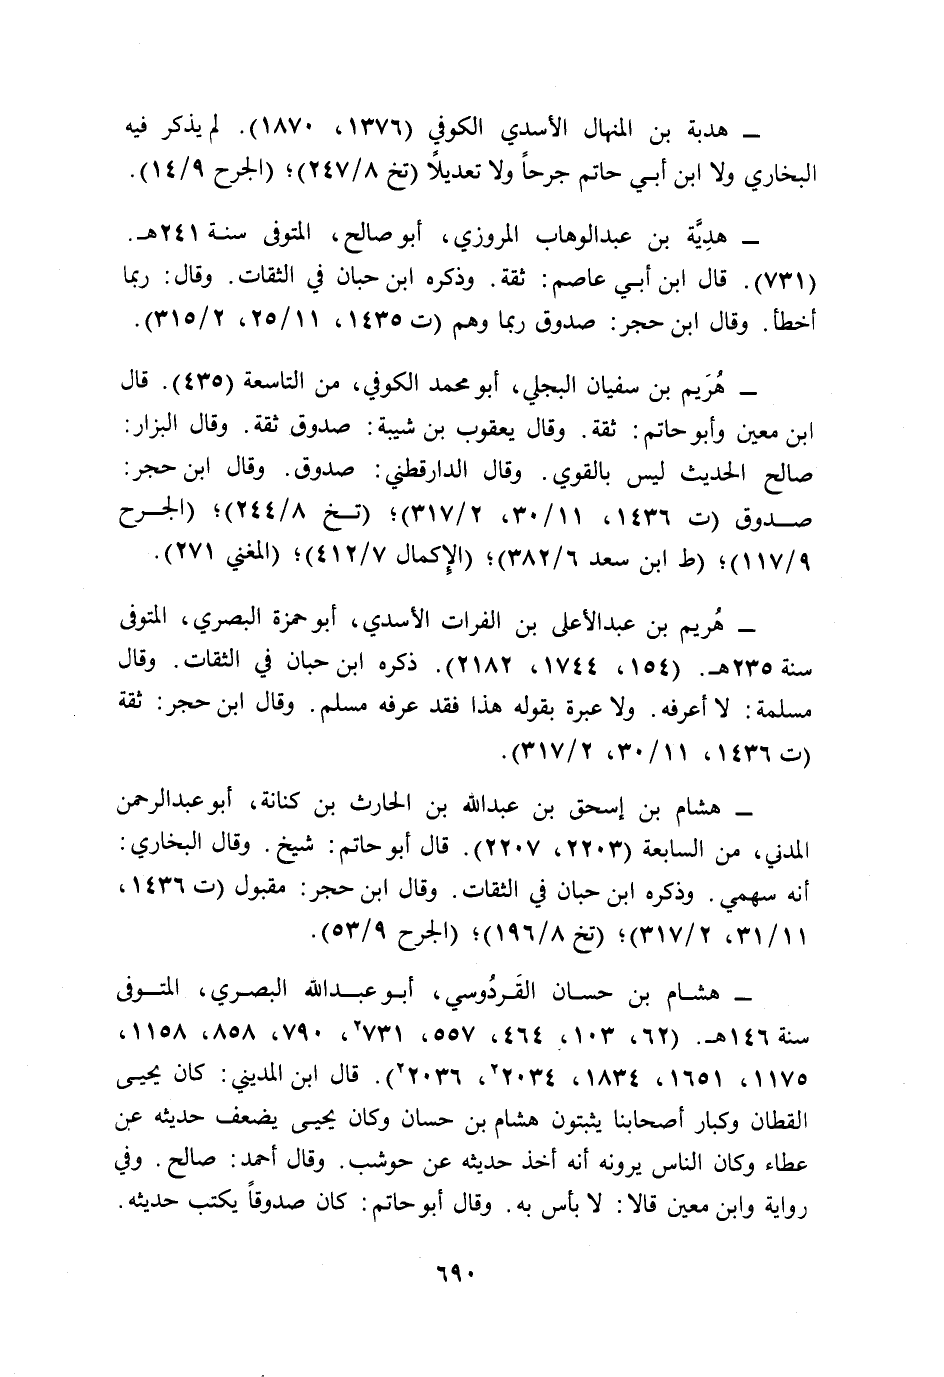 ــ هدبة بن المنهال الأسدي الكوفي (١٣٧٦، ١٨٧٠). لم يذكر فيه
البخاري ولا ابن أبـي حاتم جرحاً ولا تعديلاً (تخ ٢٤٧/٨)؛ (الجرح ١٤/٩).
ــ هدِيَّة بن عبدالوهاب المروزي، أبو صالح، المتوفى سنـة ٢٤١هـ.
(٧٣١). قال ابن أبـي عاصم: ثقة. وذكره ابن حبان في الثقات. وقال: ربما
أخطأ. وقال ابن حجر: صدوق ربما وهم (ت ١٤٣٥، ٢٥/١١، ٣١٥/٢).
ــ هُرَيم بن سفيان البجلي، أبو محمد الكوفي، من التاسعة (٤٣٥). قال
ابن معين وأبو حاتم: ثقة. وقال يعقوب بن شيبة: صدوق ثقة. وقال البزار:
صالح الحديث ليس بالقوي. وقال الدارقطني: صدوق. وقال ابن حجر:
صـــدوق (ت ١٤٣٦، ٣٠/١١، ٣١٧/٢)؛ (تــخ ٢٤٤/٨)؛ (الجـــرح
١١٧/٩)؛ (ط ابن سعد ٣٨٢/٦)؛ (الإكمال ٤١٢/٧)؛ (المغني ٢٧١).
ــ هُريم بن عبدالأعلى بن الفرات الأسدي، أبو حمزة البصري، المتوفى
سنة ٢٣٥هـ. (١٥٤، ١٧٤٤، ٢١٨٢). ذكره ابن حبان في الثقات. وقال
مسلمة: لا أعرفه. ولا عبرة بقوله هذا فقد عرفه مسلم. وقال ابن حجر: ثقة
(ت ١٤٣٦، ٣٠/١١، ٣١٧/٢).
ــ هشام بن إسحق بن عبدالله بن الحارث بن كنانة، أبو عبدالرحمن
المدني، من السابعة (٢٢٠٣، ٢٢٠٧). قال أبو حاتم: شيخ. وقال البخاري:
أنه سهمي. وذكره ابن حبان في الثقات. وقال ابن حجر: مقبول (ت ١٤٣٦،
٣١/١١، ٣١٧/٢)؛ (تخ ١٩٦/٨)؛ (الجرح ٥٣/٩).
ــ هشــام بن حسان القَـردُوسي، أبـو عبــدالله البصـري، المتــوفى
سنة ١٤٦هـ. (٦٢، ١٠٣، ٤٦٤، ٥٥٧، ٧٣١٢، ٧٩٠، ٨٥٨، ١١٥٨،
١١٧٥، ١٦٥١، ١٨٣٤، ٢٠٣٤٢، ٢٠٣٦٢). قال ابن المديني: كان يحيـى
القطان وكبار أصحابنا يثبتون هشام بن حسان وكان يحيـى يضعف حديثه عن
عطاء وكان الناس يرونه أنه أخذ حديثه عن حوشب. وقال أحمد: صالح. وفي
رواية وابن معين قالا: لا بأس به. وقال أبو حاتم: كان صدوقاً يكتب حديثه.
٦٩٠